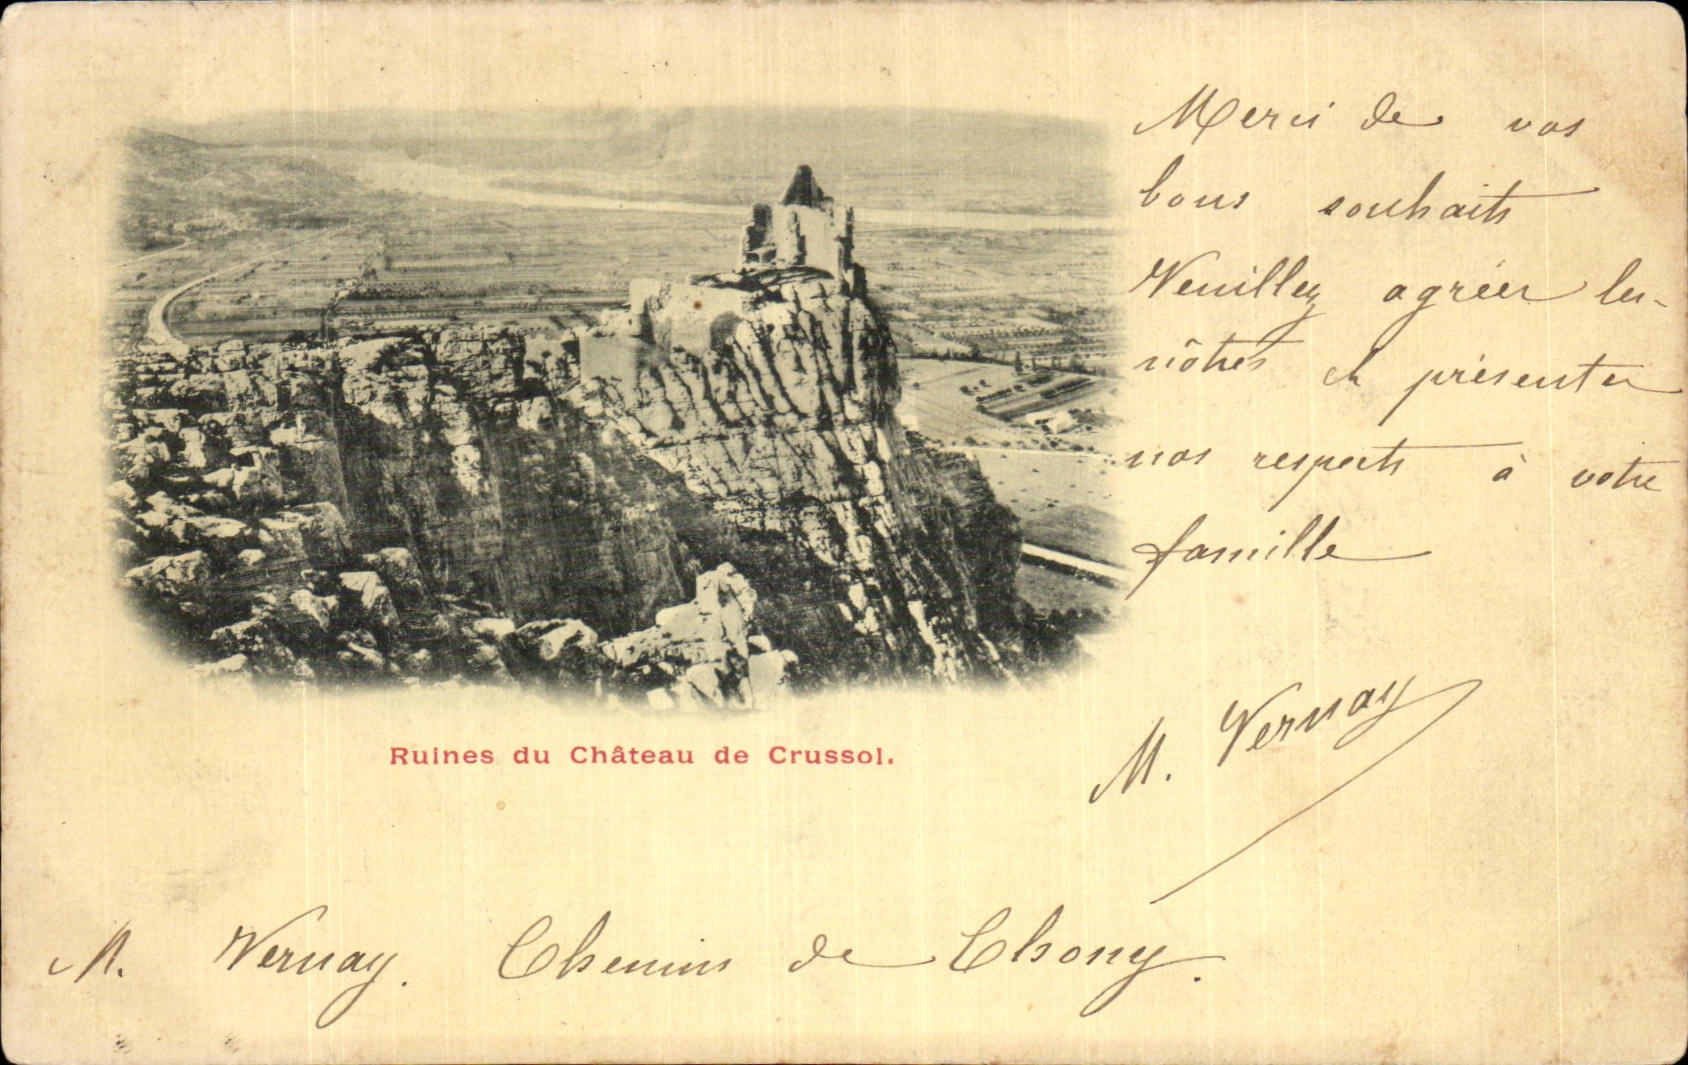 Merci de vos
bons souhaits
Veuillez agréer les
nôtres et présenter
nos respects à votre
famille
M. Vernay
Ruines du Château de Crussol.
M. Vernay. Chemin de Thony.